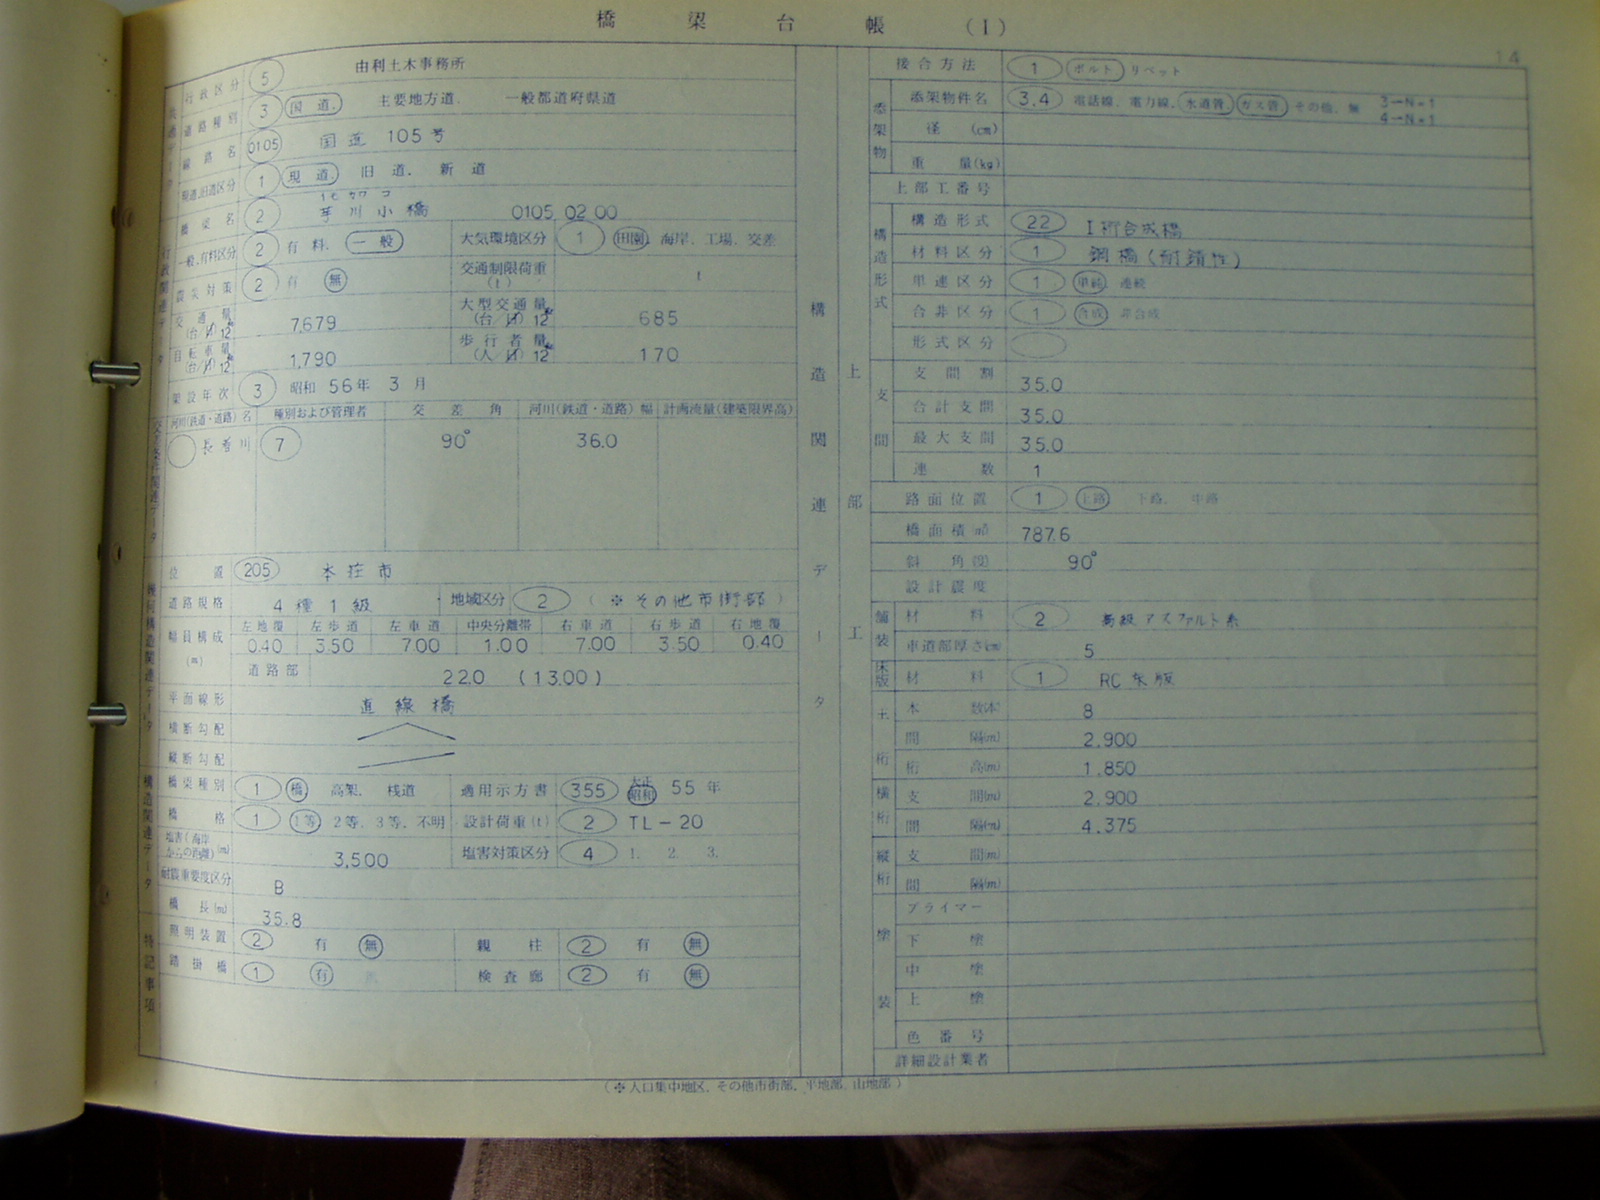 橋梁台帳 (I)
14
行政区分 5 由利土木事務所
道路種別 3 国道、 主要地方道、 一般都道府県道
路線名 0105 国道 105号
現道、旧道区分 1 現道 旧道、 新道
橋梁名 2 芋川小橋 0105 02 00
一般、有料区分 2 有料、 一般 大気環境区分 1 田園、 海岸、 工場、 交差
震災対策 2 有 無 交通制限荷重(t) t
交通量(台/日) 12h 7,679 大型交通量(台/日) 12h 685
自転車量(台/日) 12h 1,790 歩行者量(人/日) 12h 170
架設年次 3 昭和 56年 3月
河川(鉄道・道路)名 種別および管理者 交差角 河川(鉄道・道路)幅 計画流量(建築限界高)
7 90° 36.0
位置 205 本荘市
道路規格 4種1級 地域区分 2 (※ その他市街部)
幅員構成(m) 左地覆 左歩道 左車道 中央分離帯 右車道 右歩道 右地覆
0.40 3.50 7.00 1.00 7.00 3.50 0.40
道路部 22.0 (13.00)
平面線形 直線橋
横断勾配
縦断勾配
橋梁種別 1 橋、 高架、 桟道 適用示方書 355 大正 昭和 55年
橋格 1 1等、 2等、 3等、 不明 設計荷重(t) 2 TL-20
塩害(海岸からの距離)(m) 3,500 塩害対策区分 4 1. 2. 3.
耐震重要度区分 B
橋長(m) 35.8
照明装置 2 有 無 親柱 2 有 無
踏掛橋 1 有 無 検査廊 2 有 無
特記事項
構造関連データ
上部工
接合方法 1 ボルト リベット
添架物 添架物件名 3,4 電話線、電力線、水道管、ガス管、その他、無 3→N=1
4→N=1
径 (cm)
重量(kg)
上部工番号
構造形式 構造形式 22 I桁合成橋
材料区分 1 鋼橋(耐錆性)
単連区分 1 単純、 連続
合非区分 1 合成 非合成
形式区分
支間 支間割 35.0
合計支間 35.0
最大支間 35.0
連数 1
路面位置 1 上路 下路、 中路
橋面積(㎡) 787.6
斜角(度) 90°
設計震度
舗装 材料 2 高級アスファルト系
車道部厚さ(cm) 5
床版 材料 1 RC床版
主桁 本数(本) 8
間隔(m) 2.900
桁高(m) 1.850
横桁 支間(m) 2.900
間隔(m) 4.375
縦桁 支間(m)
間隔(m)
塗装 プライマー
下塗
中塗
上塗
色番号
詳細設計業者
(※人口集中地区、その他市街部、平地部、山地部)